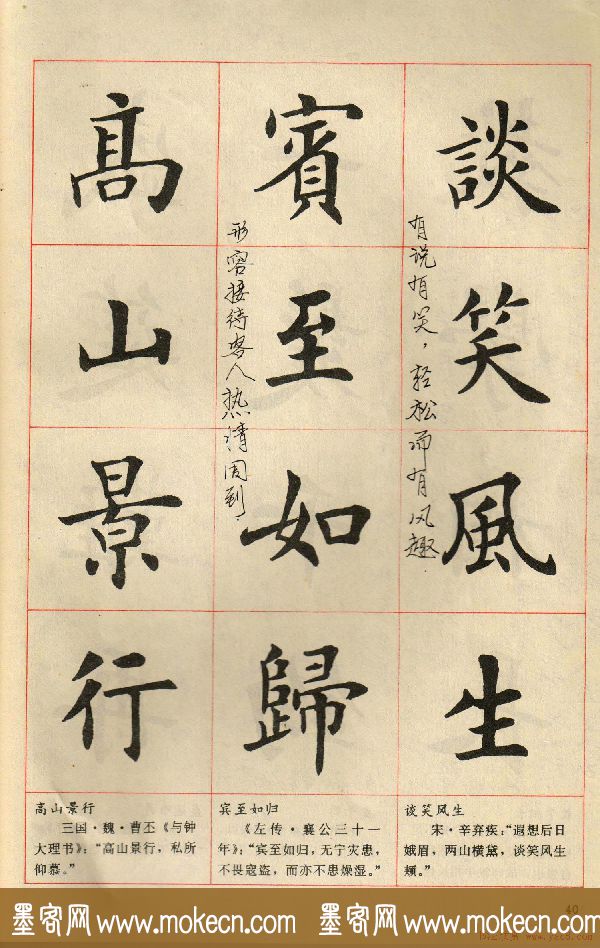 談笑風生
有说有笑，轻松而有风趣.
賓至如歸
形容接待客人热情周到.
髙山景行
谈笑风生
宋·辛弃疾：“遐想后日
娥眉，两山横黛，谈笑风生
颊。”
宾至如归
《左传·襄公三十一
年》：“宾至如归，无宁灾患，
不畏寇盗，而亦不患燥湿。”
高山景行
三国·魏·曹丕《与钟
大理书》：“高山景行，私所
仰慕。”
40
墨客网 www.mokecn.com 墨客网 www.mokecn.com